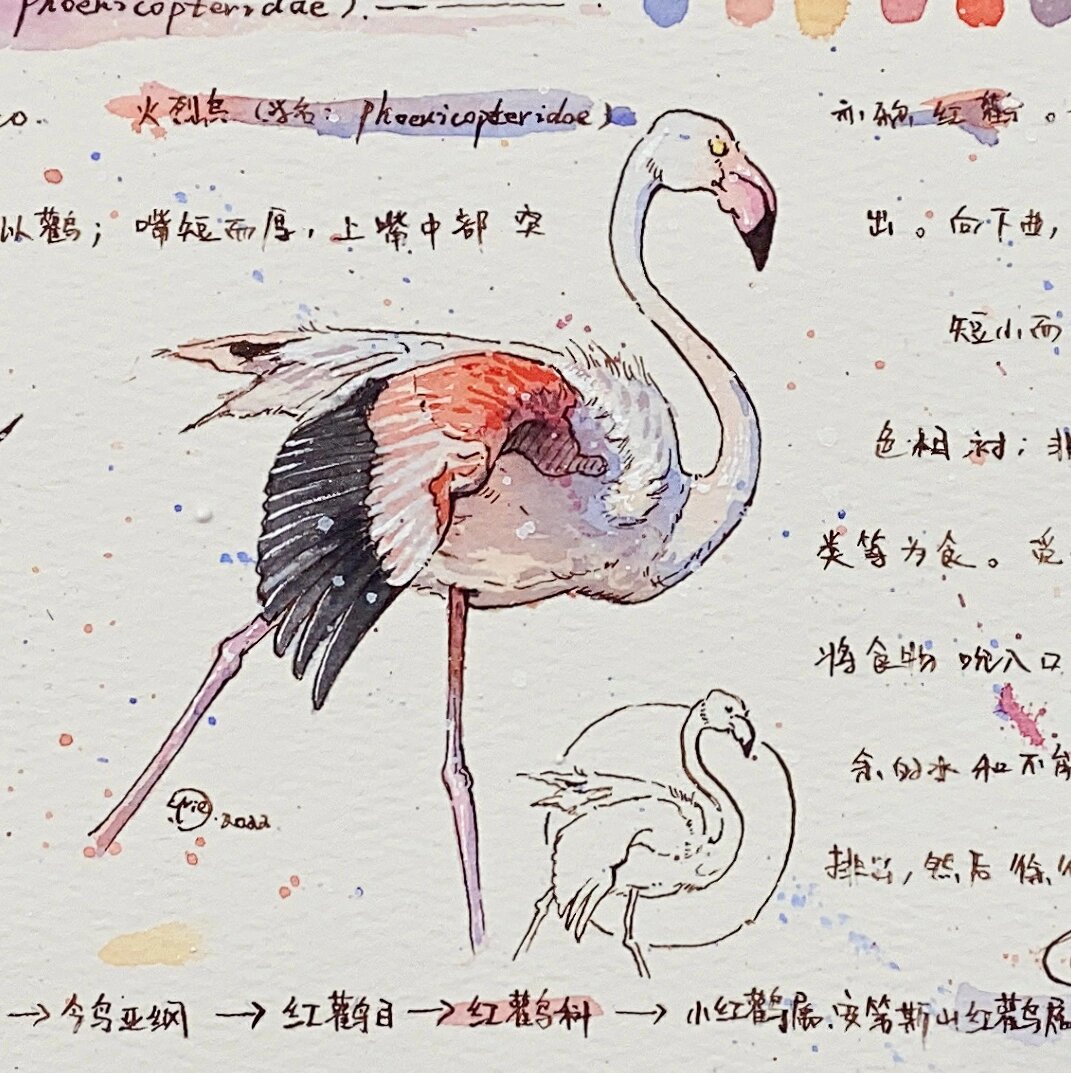 Phoenicopteridae).
火烈鸟 (学名: Phoenicopteridae) 亦称 红鹳 。
以鹳; 嘴短而厚, 上嘴中部 突 出。向下曲,
短小而
色相 衬; 非
类等为食。觅
将食物 吮入口
余的水 和不能
排出, 然后 徐
2022
→今鸟亚纲 → 红鹳目→红鹳科 → 小红鹳属.安第斯山红鹳属